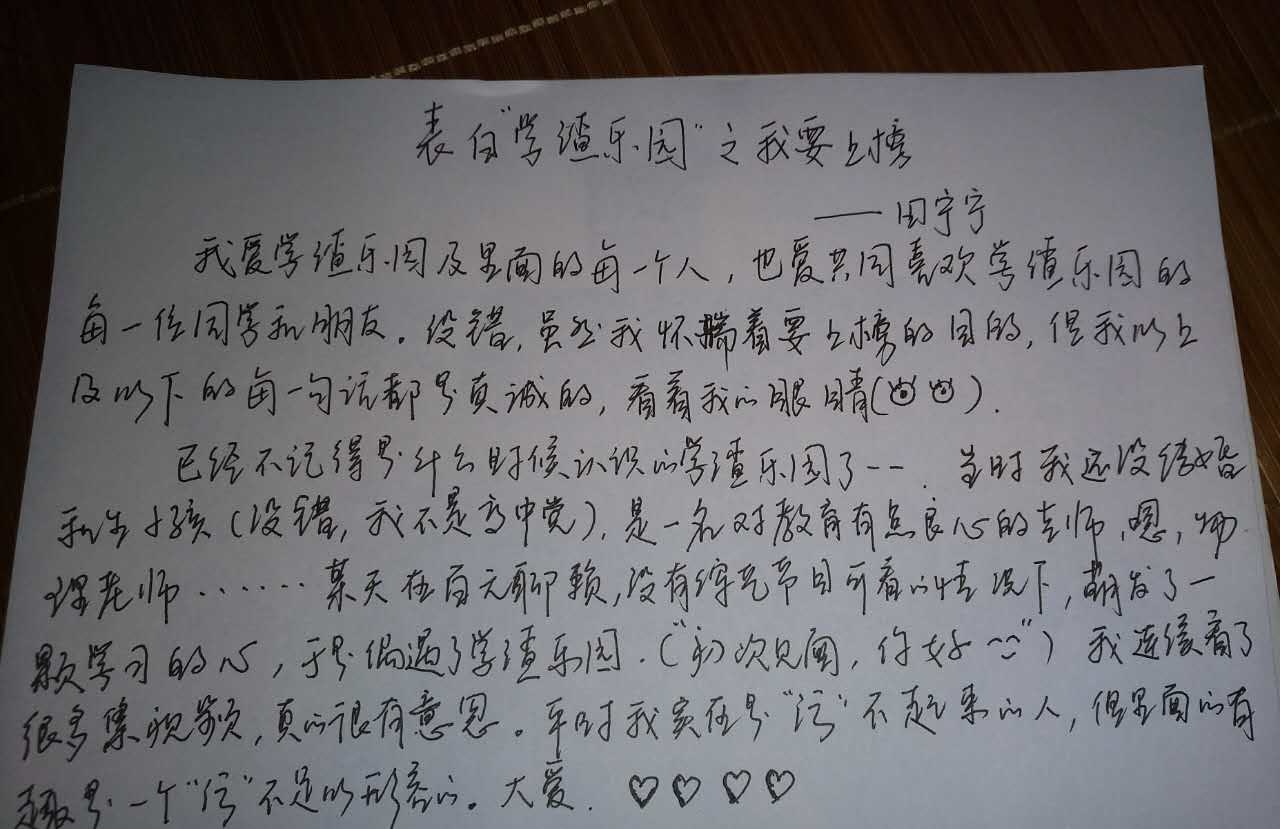 表白“学渣乐园”之我要上榜
——田宁宁
我爱学渣乐园及里面的每一个人,也爱共同喜欢学渣乐园的
每一位同学和朋友。没错,虽然我怀揣着要上榜的目的,但我以上
及以下的每一句话都是真诚的,看着我的眼睛( )。
已经不记得是什么时候认识的学渣乐园了--. 当时我还没结婚
和生小孩(没错,我不是高中党),是一名对教育有点良心的老师,恩,物
理老师······某天在百无聊赖,没有综艺节目可看的情况下,萌发了一
颗学习的心,于是偶遇了学渣乐园.(“初次见面,你好~”)我连续看了
很多集视频,真的很有意思。平时我实在是“污”不起来的人,但里面的有
趣是一个“污”不足以形容的。大爱. ♡♡♡♡